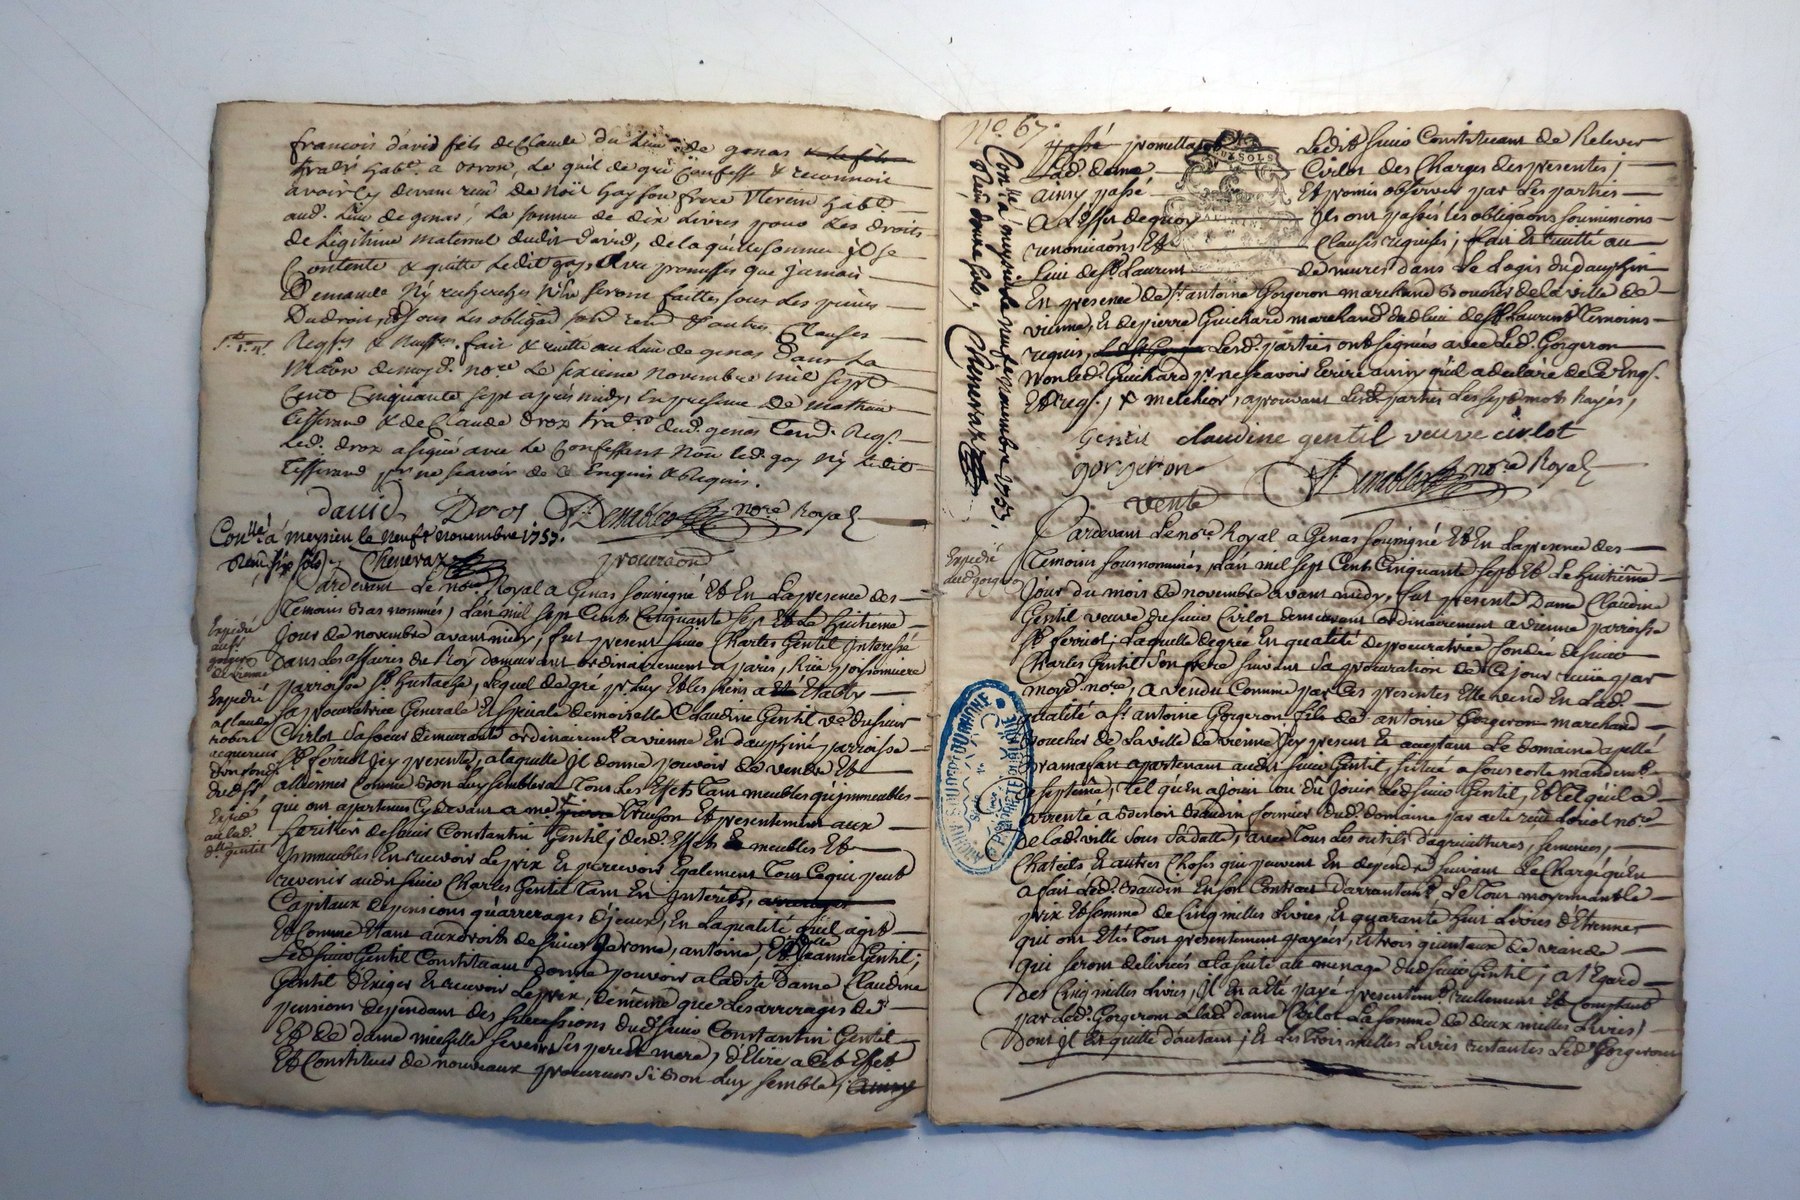 francois david fils de Claude du lieu de genas
trad.r hab.t a dron, Le quel de gré Confesse & reconnoit
avoir
aud. lieu de genas, La somme de dix Livres pour Les droits
de Légitime maternel dudit david, de laquelle somme il se
Contente & quitte Ledit gay, avec promesses que jamais
Demande ny recherches n'en seront faittes sous Les peines
Du droit,
fait & recitté au Lieu de genas dans La
no.re Le sixieme Novembre mil sept
Cent Cinquante sept après midy, En presence De mathieu
Tisserand & de Claude drox trad.r dud. genas
Led. drox a signé avec Le Confessant Non led. gay Ny Ledit
Tisserand p.r ne scavoir de ce Enquis & Requis.
david Dros Denableo no.re Royal
Con.llé á meysieu le neuf novembre 1757.
Receu six sols Chenevaz
procuraon
Pardevant Le no.re Royal a Genas soussigné Et En La presence des
Temoins Bas nommés, L'an mil sept Cents Cinquante Sept Et Le huitiéme
Jour de novembre avant midy, fut present sieur Charles Gentil Interessé
Dans Les affaires du Roy demeurant ordinairement a paris, Rüe poisonniere
parroisse S.t Eustache, Lequel de gré p.r Luy Et les siens a Etably
sa procuratrice Generale Et speciale demoiselle Claudine Gentil v.e du sieur
Cirlot sa soeur demeurante ordinairem.t a vienne En dauphiné parroisse
S.t ferriol Icy presente, a laquelle Il donne pouvoir de vendre Et
alliener Comme Bon luy semblera Tous Les Effets Tant meubles qu'immeubles
que ont apartenu Cy devant a Et presentement aux
heritiers de sieur Constantin Gentil, desd. Effets meubles Et
Immeubles En recevoir Le prix Et percevoir Egalement Tout Ce qui peut
revenir audit sieur Charles Gentil Tant En Interêts,
Capitaux de pensions qu'arrerages d'jceux, En La qualité qu'il agit
Et Comme Etant aux droits de sieurs Jerome, antoine, Et Jeanne Gentil;
Ledit sieur Gentil Constituant donne pouvoir a ladite Dame Claudine
Gentil d'Exiger Et recevoir Le prix, de même que Les arrerages de
pensions dependant des successions dud. sieur Constantin Gentil
Et de dame michelle ses pere Et mere, d'Elire a Cet Effet
Et Constituer de nouveaux procureurs si Bon Luy semble,
Expedié
aud.
gorgeron
de vienne
Expedié
a claude
robert
acquereur
d'un fonds
dud. s.r
Expedié
a lad.
d.lle gentil
N.o 67.
Con.llé a meysieu le neuf novembre 1757.
Receu douze sols, Chenevaz
passé promettant Ledit sieur Constituant de Relever
Lad. dame Cirlot des Charges des presentes;
ainsy passé Et promis observer par Les parties
A L'Effet de quoy Ils ont passés les obligaons soumissions
renonciaons Et Clauses requises; fait Et recitté au
Lieu de S.t Laurent de mures dans Le Logis du dauphin
En presence de S.r antoine Gorgeron marchand Boucher de la ville de
vienne, Et de pierre Guichard marchand dud. lieu de S.t Laurent Temoins
requis, Les d. parties ont signées avec Led. Gorgeron
Non Led. Guichard p.r ne scavoir Ecrire ainsy qu'il a declaré de ce Enq.s
Et req.s,
Gentil claudine gentil veuve cirlot
gorgeron Denableo no.re Royal
vente
Pardevant Le no.re Royal a Genas soussigné Et En La presence des
Temoins sousnommés, L'an mil sept Cent Cinquante sept Et Le huitiéme
Jour du mois de novembre avant midy, fut presente Dame Claudine
Gentil veuve de sieur Cirlot demeurant ordinairement a vienne parroisse
S.t ferriol; Laquelle de gré En qualité de procuratrice fondée de sieur
Charles Gentil son frere suivant sa procuration de Ce jour receüe par
moyd. no.re, a vendu Comme par Ces presentes Elle vend En Lad.
qualité a S.r antoine Gorgeron fils de antoine Gorgeron marchand
Boucher de La ville de vienne Icy present Et acceptant Le domaine apellé
apartenant audit sieur Gentil, situé a mandem.t
de septeme, Tel qu'En a Joui ou dû Jouir Led. sieur Gentil, Et Tel qu'il a
arrenté á Baudin fermier dud. domaine par acte receu no.re
de lad. ville sous sa datte, avec Tous Les outils d'agricultures, semences,
Et autres Choses qui peuvent En dependre suivant
a fait Led. Baudin En son Contrat d'arrantem.t Le Tout moyennant Le
prix Et somme de Cinq milles Livres, Et quarante huit Livres d'Etrennes
qui ont Etés Tout presentement payées, Et trois quintaux de
qui seront delivrés a la suite au menage dud. sieur Gentil; a l'Egard
Des Cinq milles Livres, Il En a Eté payé presentem.t reellement Et Comptant
par Led. Gorgeron a lad. dame Cirlot La somme de deux milles Livres,
Dont Il Est quitte d'autant; Et Les Trois milles Livres restantes Led. Gorgeron
Expedié
aud. gorgeron
ARCHIV. SOUDUPSOUDUMONE
PROPRIETE PUBLIQUE